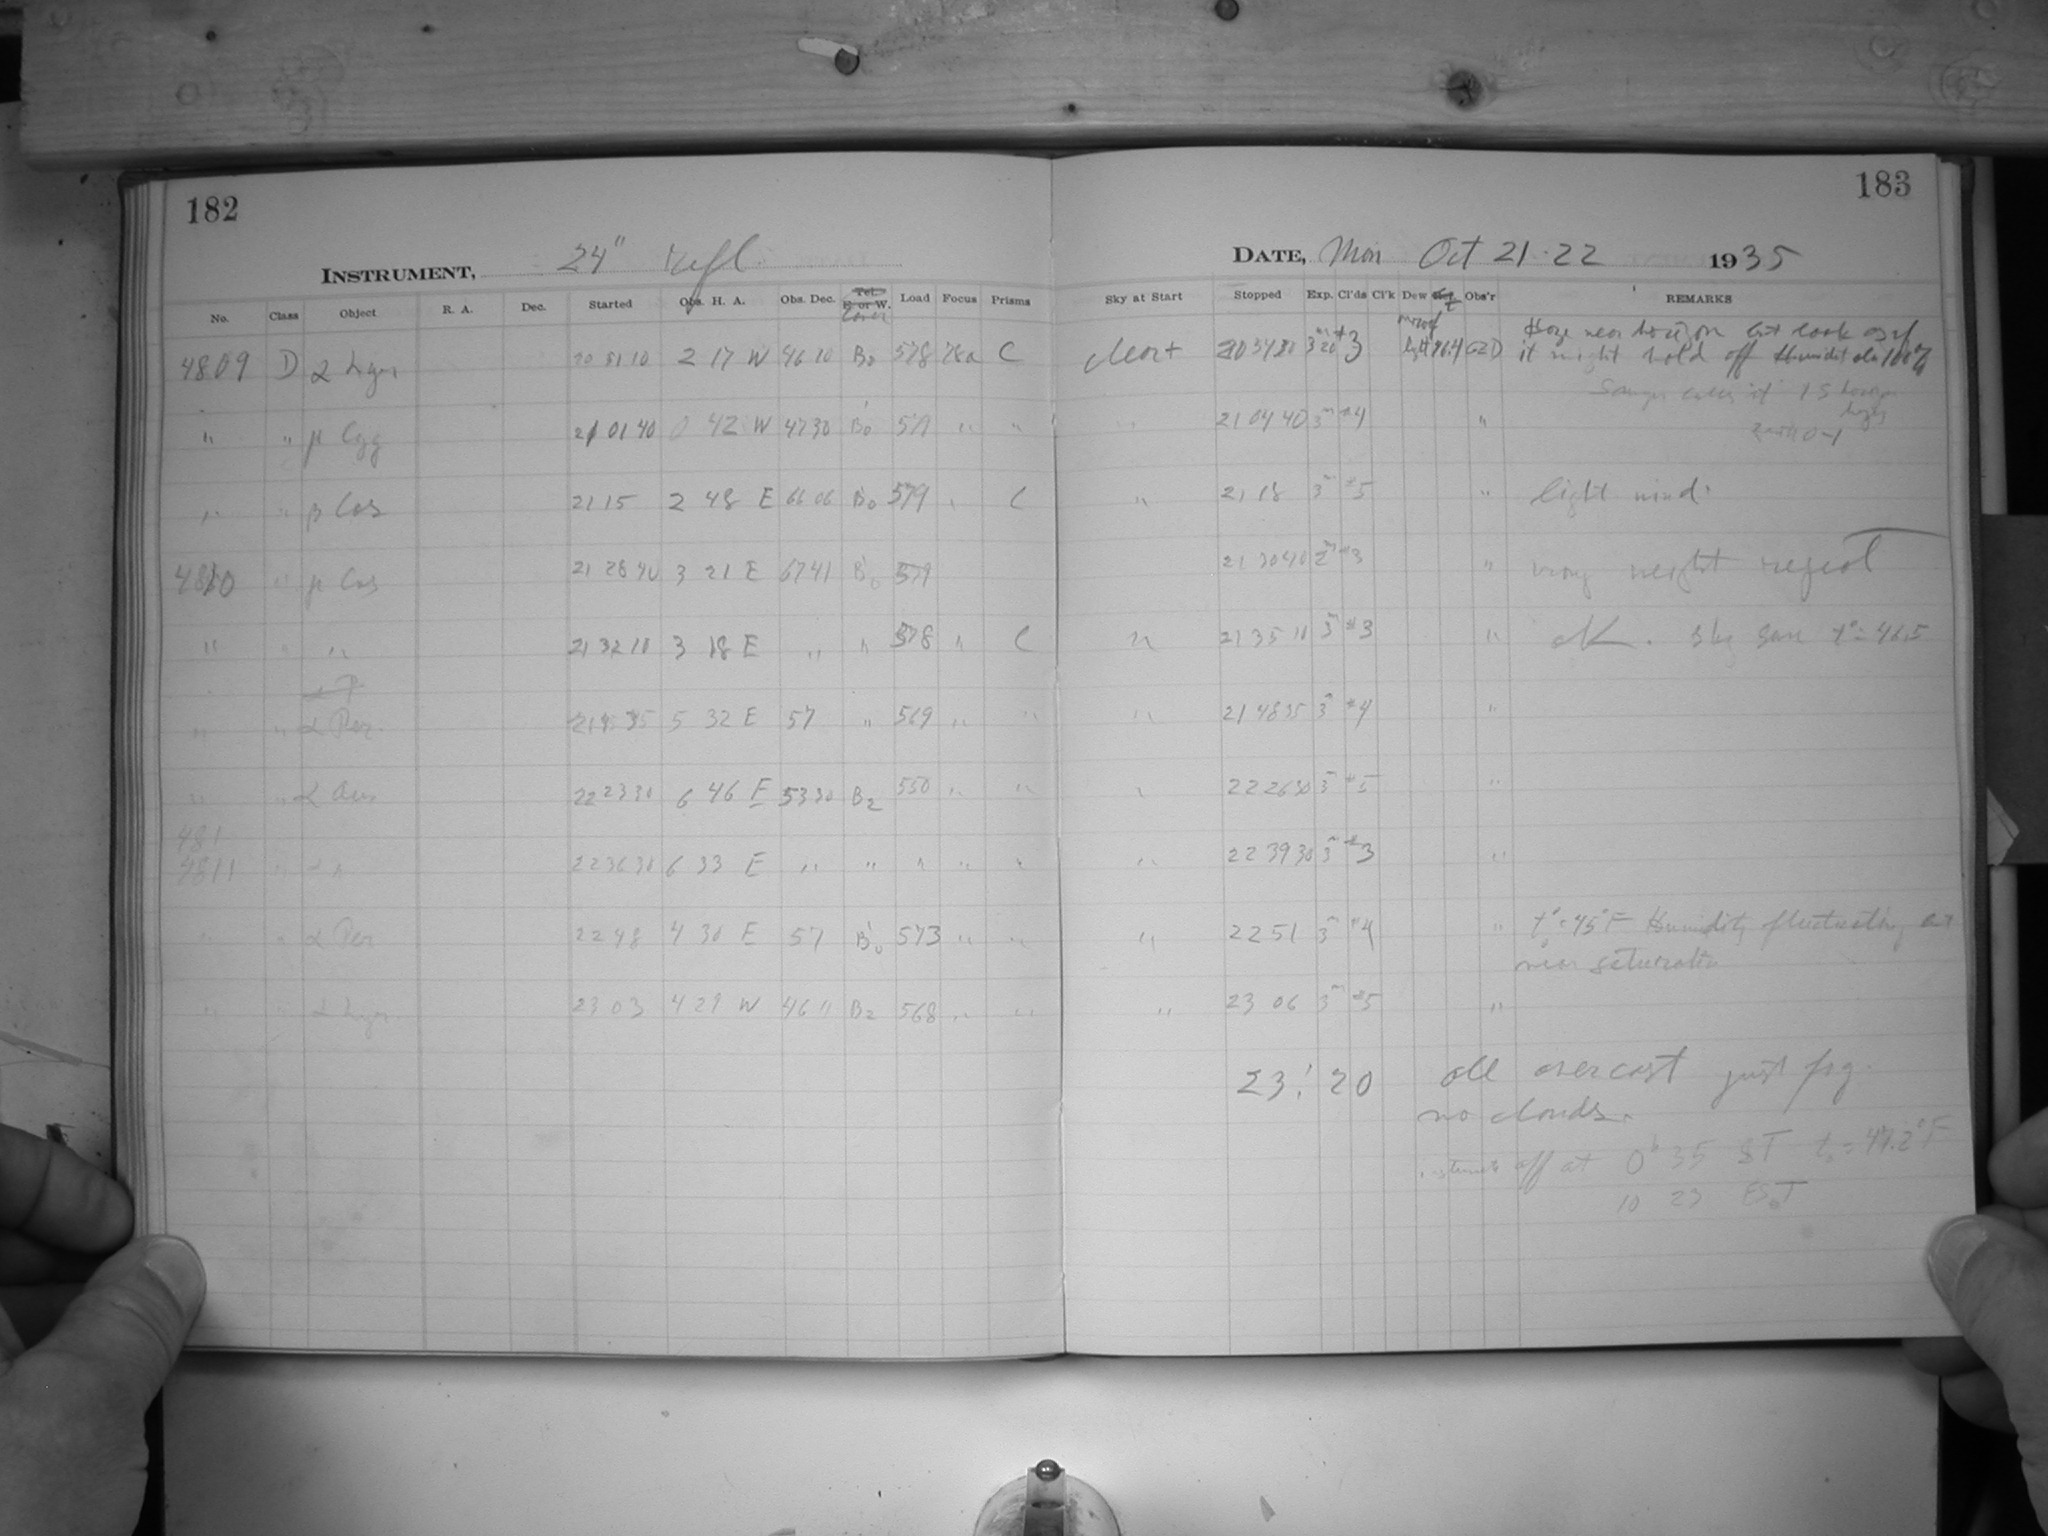 182
183
INSTRUMENT, 24" refl.
DATE, Mon Oct 21-22 1935
No. Class Object R. A. Dec. Started Obs. H. A. Obs. Dec. Tel. E. or W. Load Focus Prisms Sky at Start Stopped Exp. Cl'ds Cl'k Dew Obs'r REMARKS
4809 D α Lyr 2 17 W B0 578 C Clear + 3 Haze near horizon but look as if
it might hold off Humidit
" " Cyg 21 01 40 0 42 W 4730 B0 579 " " " 21 04 40 3m #4 "
" " β Cas 21 15 2 48 E 6606 B0 579 " C " 21 18 3m #5 " light wind
4810 " Cas 21 28 40 3 21 E 6741 B0 579 21 30 40 2m #3 " wrong weight reject
" " " 21 32 10 3 18 E " " 578 " C " 21 35 10 3m #3 " OK. Sky same t°= 46.5
" " α Per. 5 32 E 57 " 569 " " " 21 48 35 3m #4 "
" " α Aur 22 23 30 6 46 E 5330 B2 550 " " " 22 26 30 3m #5 "
481
4811 " " " 22 36 30 6 33 E " " " " " " 22 39 30 3m #3 "
" " α Per 22 48 4 30 E 57 B0 573 " " " 22 51 3m #4 " t°=45°F Humidity fluctuating but
near saturation
" " α Lyr. 23 03 4 29 W 46 11 B2 568 " " " 23 06 3m #5 "
23:20 all overcast just fog.
no clouds.
off at 0h 35 ST = 47.2°F
10 23 EST